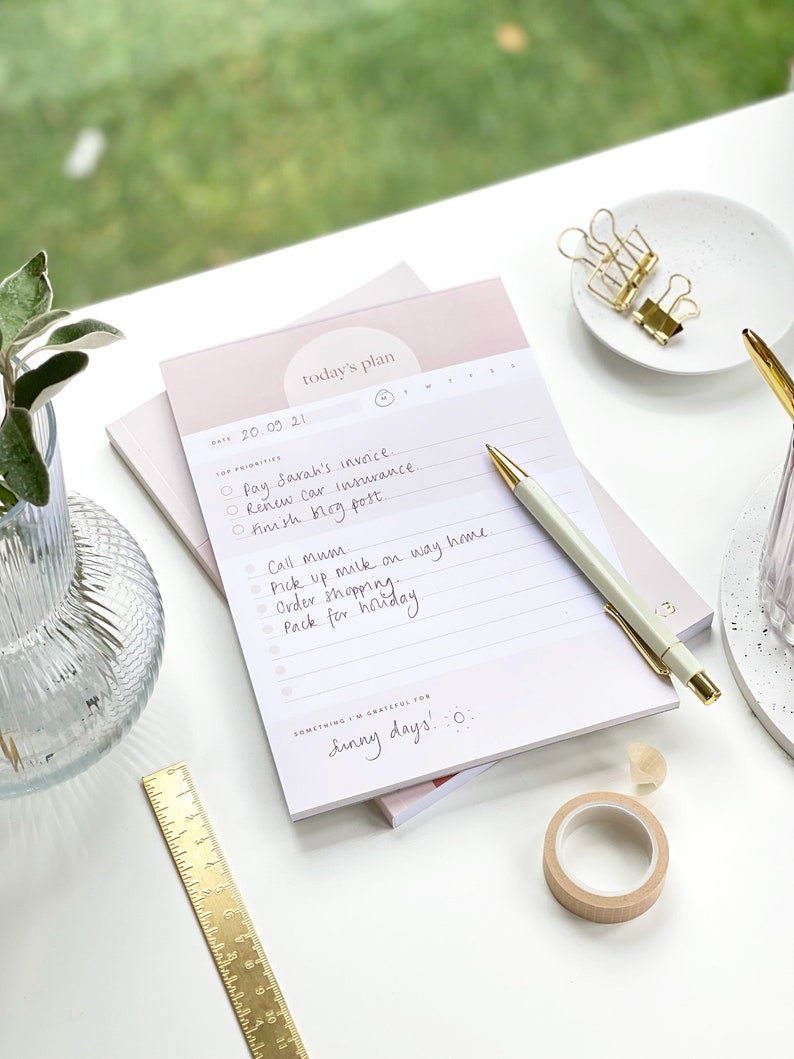 today's plan
M T W T F S S
DATE 20.09.21
TOP PRIORITIES
Pay Sarah's invoice.
Renew car insurance.
Finish blog post
Call mum.
Pick up milk on way home.
Order shopping.
Pack for holiday
SOMETHING I'M GRATEFUL FOR
Sunny days!